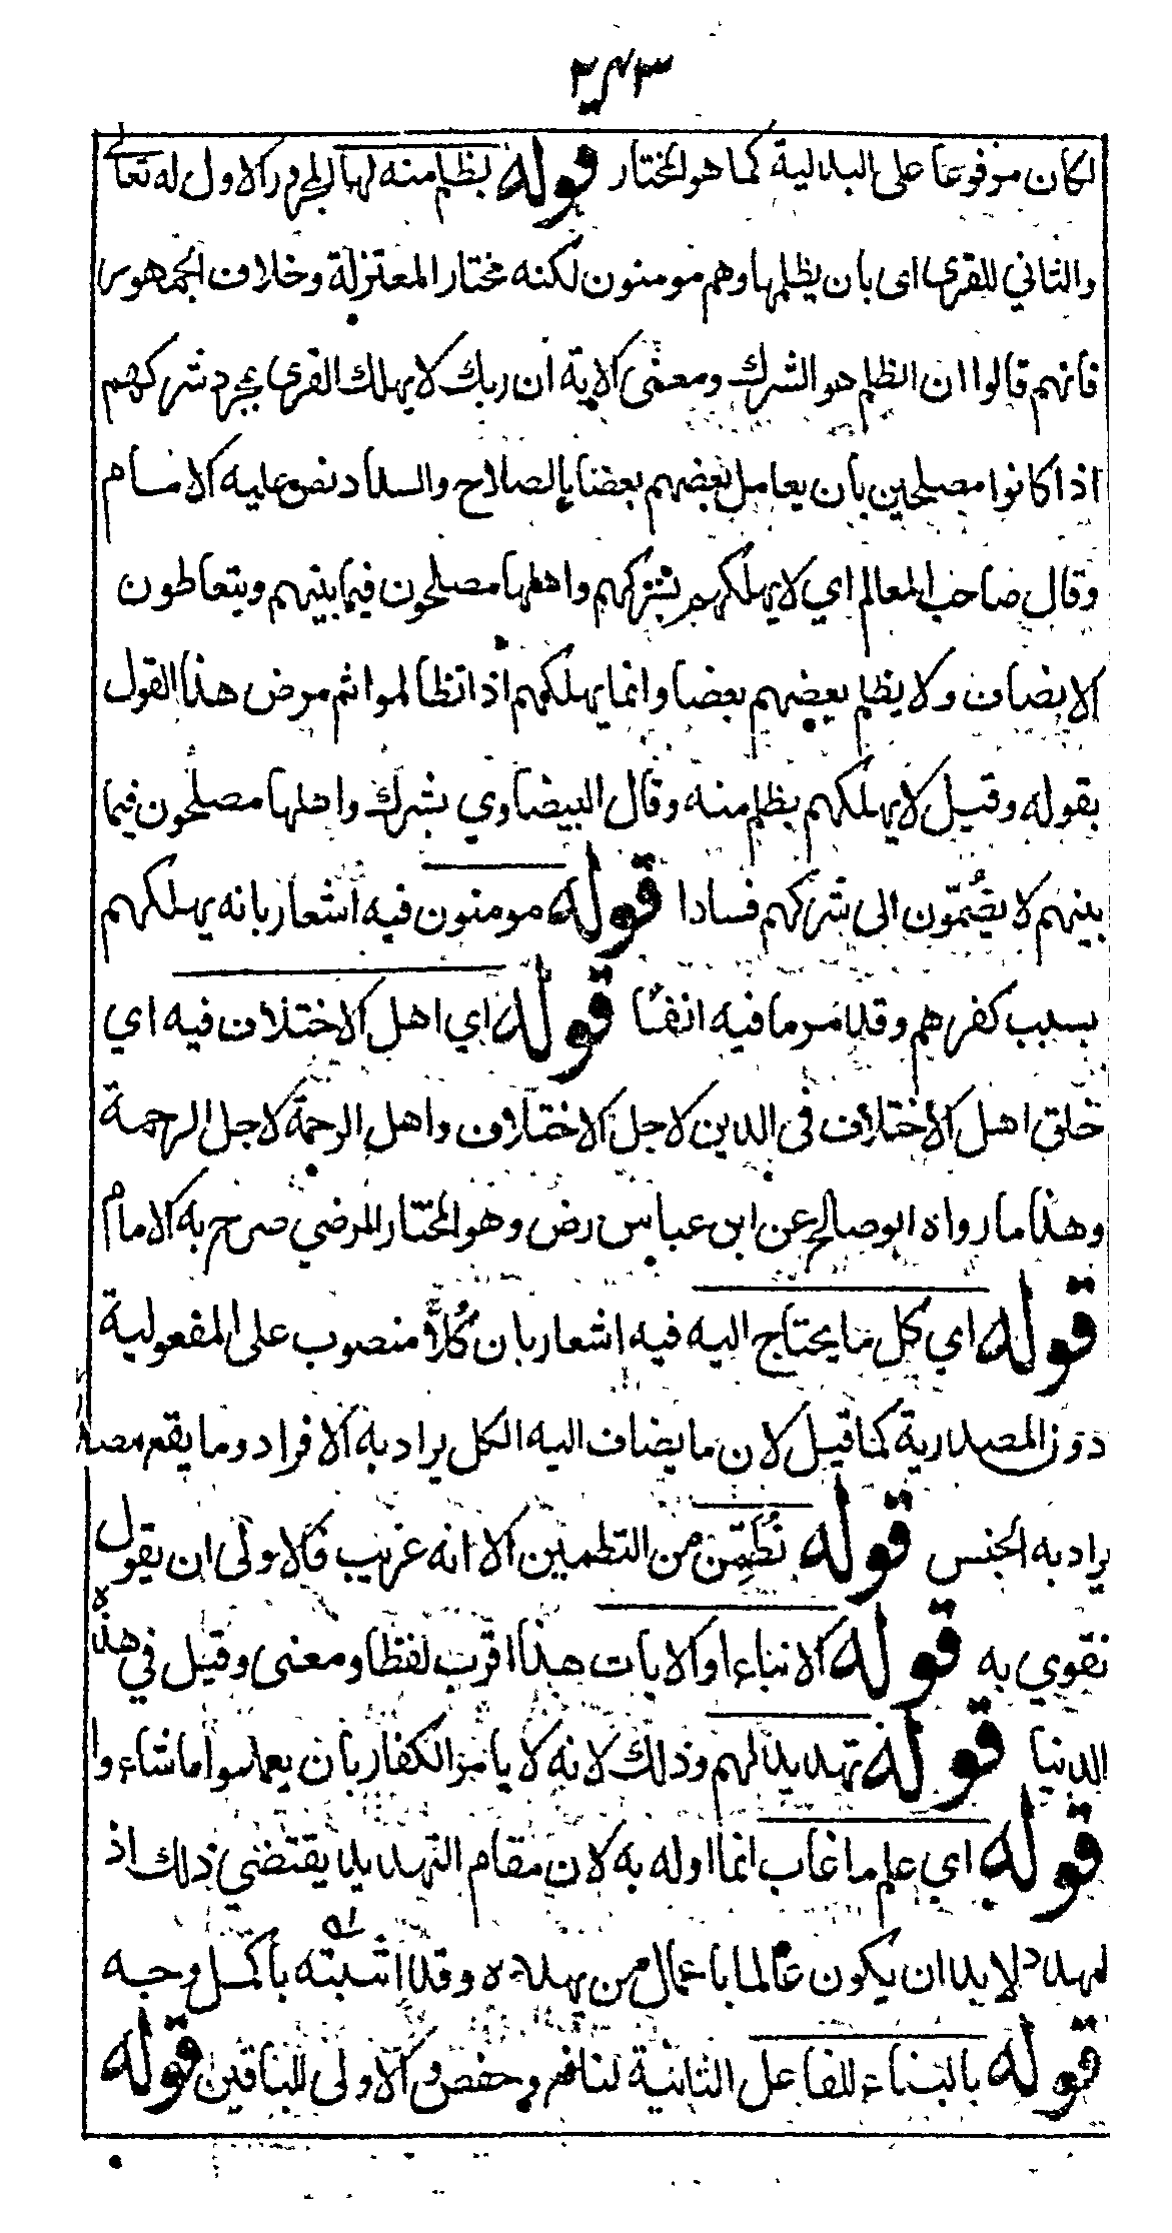 ٢٤٣
لكان مرفوعا على البدلية كما هو المختار قوله بظلم منه لها المجرور الاول له تعالى
والثاني للقرى اى بان يظلمها وهم مومنون لكنه مختار المعتزلة وخلاف الجمهور
فانهم قالوا ان الظلم هو الشرك ومعنى الاية ان ربك لا يهلك القرى بمجرد شركهم
اذا كانوا مصلحين بان يعامل بعضهم بعضا بالصلاح والسداد نص عليه الامام
وقال صاحب المعالم اي لا يهلكهم بشركهم واهلها مصلحون فيما بينهم ويتعاطون
الانصاف ولا يظلم بعضهم بعضا وانما يهلكهم اذا تظالموا ثم مرض هذا القول
بقوله وقيل لا يهلكهم بظلم منه وقال البيضاوي بشرك واهلها مصلحون فيما
بينهم لا يضُمّون الى شركهم فسادا قوله مومنون فيه اشعار بانه يهلكهم
بسبب كفرهم وقد مر ما فيه انفا قوله اي اهل الاختلاف فيه اي
خلق اهل الاختلاف فى الدين لاجل الاختلاف واهل الرحمة لاجل الرحمة
وهذا ما رواه ابو صالح عن ابن عباس رض وهو المختار المرضي صرح به الامام
قوله اي كل ما يحتاج اليه فيه اشعار بان كُلاًّ منصوب على المفعولية
دون المصدرية كما قيل لان ما يضاف اليه الكل يراد به الافراد وما يقع مصدرا
يراد به الجنس قوله نُطَمِّن من التطمين الا انه غريب فالاولى ان يقول
نقوي به قوله الانباء او الايات هذا اقرب لفظا ومعنى وقيل في هذه
الدنيا قوله تهديد لهم وذلك لانه لا يامر الكفار بان يعملوا ما شاءوا
قوله اي علم ما غاب انما اوله به لان مقام التهديد يقتضي ذلك اذ
المهدد لا بد ان يكون عالما باعمال من يهدده وقد اثبته بأكمل وجه
قوله بالبناء للفاعل الثانية لنافع وحفص والاولى للباقين قوله